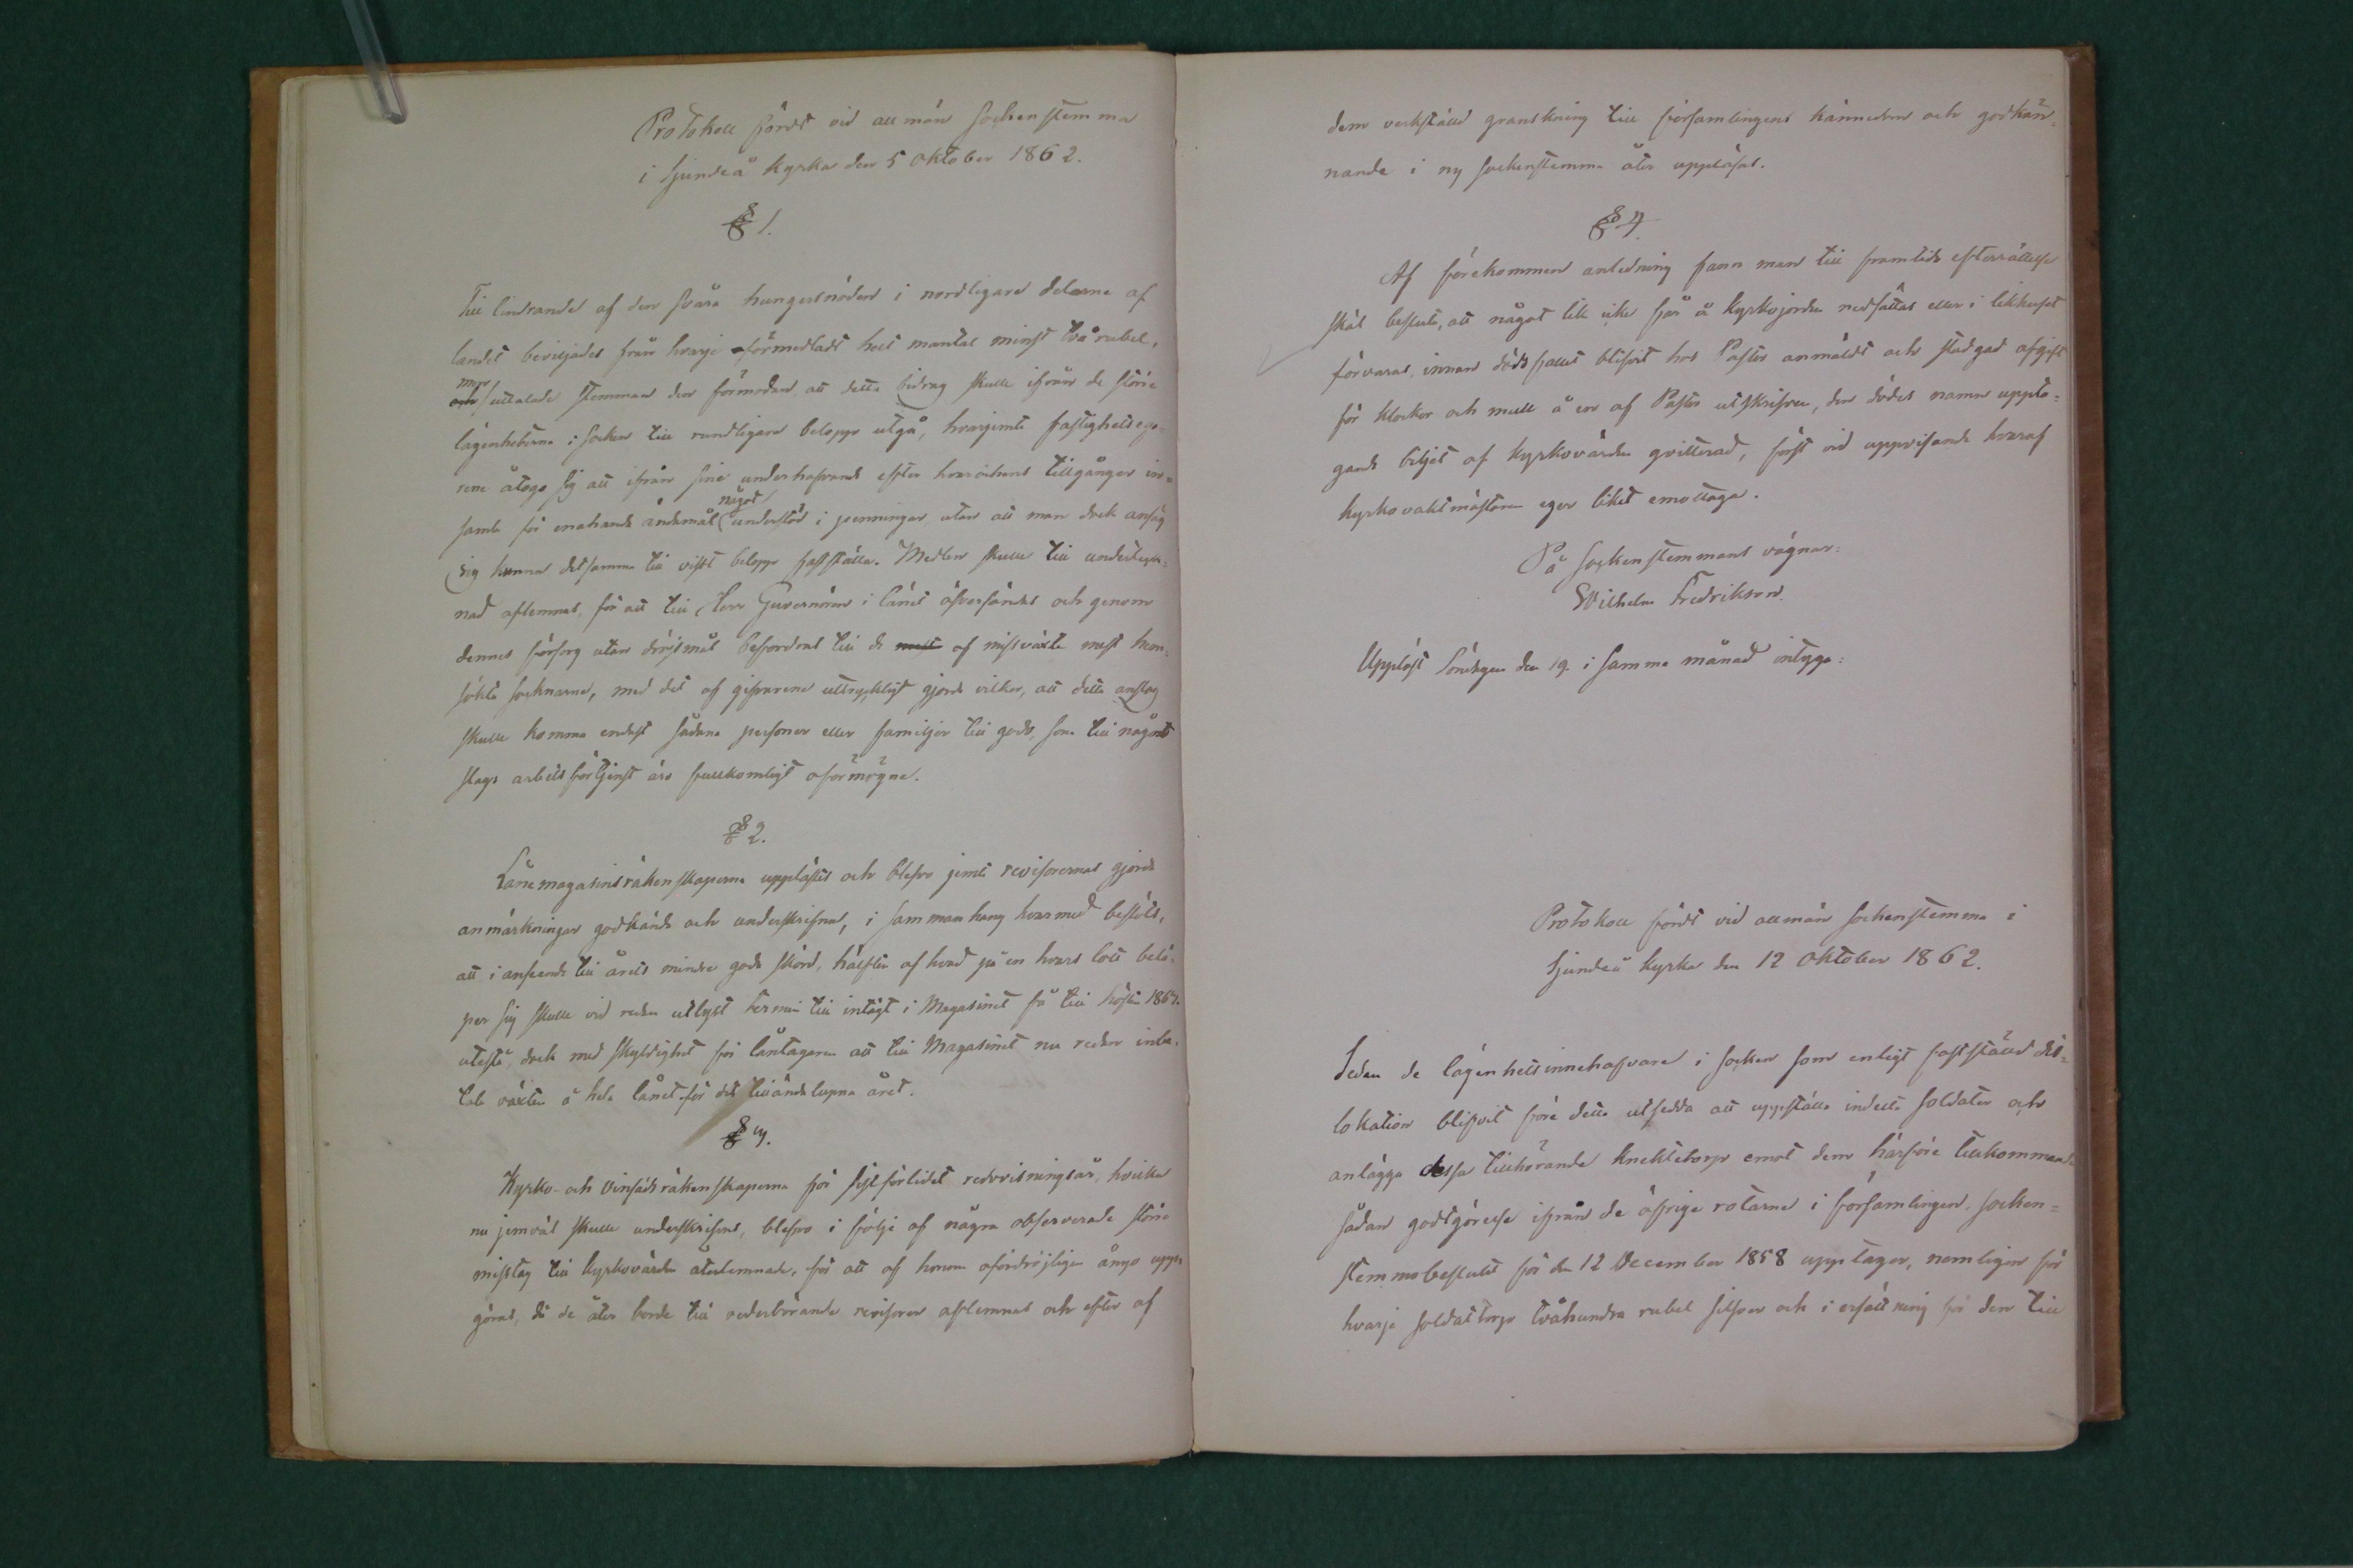 Protokoll fördt vid allmän Sockenstemma
i Sjundeå Kyrka den 5 Oktober 1862.
§ 1.
Till lindrande af den svåra hungersnöden i nordligare delarne af
landet beviljades från hvarje oförmedladt helt mantal minst två rubel,
men uttalade stemman den förmodan, att detta bidrag skulle ifrån de större
lägenheterna i Socken till rundligare belopp utgå, hvarjemte fastighetsega-
rene åtogo sig att ifrån sine underhafvande efter hvar och ens tillgångar in-
samla för enahanda ändamål något understöd i penningar, utan att man dock ansåg
sig kunna detsamma till visst belopp fastställa. Medlen skulle till undertegn-
nad aflemnas, för att till Herr Guvernören i länet öfversändas och genom
dennes försorg utan dröjsmål befordras till de af missväxte mest hem-
sökta socknarne, med det af gifvarene uttryckligt gjorda vilkor, att detta anslag
skulle komma endast sådana personer eller familjer till godo, som till någondt
slags arbetsförtjenst äro fullkomligt oförmögne.
§ 2.
Lånemagasinsräkenskaperna upplästes och blefvo jemte revisorernas gjorda
anmärkningar godkända och underskrifna, i sammanhang hvarmed beslöts,
att i anseende till årets mindre goda skörd, hälften af hvad på en hvars lott belö-
per sig skulle vid redan utlyst termin till intägt i Magasinet få till hösten 1863.
utestå, dock med skyldighet för låntagaren att till Magasinet nu redan inbe-
tala växten å hela lånet för det tilländalupna året.
§ 3.
Kyrko- och Vinsädsräkenskaperna för sistförlidet redovisningsår, hvilka
nu jemväl skulle underskrifvas, blefvo i följe af några observerade större
misstag till Kyrkovärden återlemnade, för att af honom ofördröjligen ånyo upp-
göras, då de åter borde till vederbörande revisorer aflemnas och efter af
dem verkställd granskning till församlingens kännedom och godkän-
nande i ny sockenstemma åter uppläsas.
§ 4.
Af förekommen anledning fann man till framtids efterrättelse
skäl besluta, att något lik icke får å Kyrkojorden nedsättas eller i likhuset
förvaras, innan dödsfallet blifvit hos Pastor anmäldt och stadgad afgift
för klockor och mull å en af Pastor utskrifven, den dödes namn uppta-
gande biljet af Kyrkovärden qvitterad, först vid uppvisande hvaraf
kyrkovaktmästaren eger liket emottaga.
På Sockenstemmans vägnar:
Wilhelm Fredrikson.
Uppläst Söndagen den 19 i samma månad intyga:
Protokoll fördt vid allmän Sockenstemma i
Sjundeå Kyrka den 12 Oktober 1862.
Sedan de lägenhetsinnehafvare i Socken som enligt fastställd dis-
lokation blifvit före detta utsedda att uppställa indelta Soldater och
anlägga dessa tillhörande knektetorp emot dem härföre tillkommande
sådan godtgörelse ifrån de öfrige rotarne i församlingen, socken-
stemmobeslutet för den 12 December 1858 upptager, nemligen för
hvarje soldattorp tvåhundra rubel silfver och i ersättning för den till